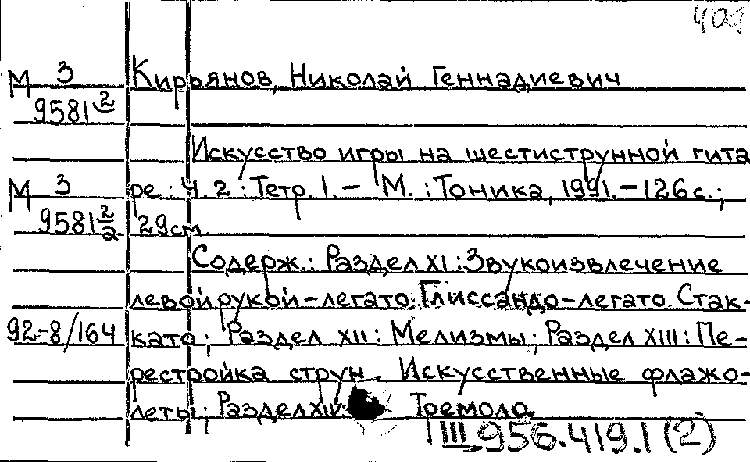 409
М 3 Кирьянов, Николай Геннадиевич
9581 2/
Искусство игры на шестиструнной гита
М 3 ре: Ч. 2: Тетр. 1. – М.: Тоника, 1991. – 126 с.;
9581 2/2 29см
Содерж.: Раздел XI: Звукоизвлечение
левой рукой – легато. Глиссандо – легато. Стак-
92-8/164 като; Раздел XII: Мелизмы; Раздел XIII: Пе-
рестройка струн. Искусственные флажо-
леты; Раздел XIV: Тремоло
III 956.419.1 (2)